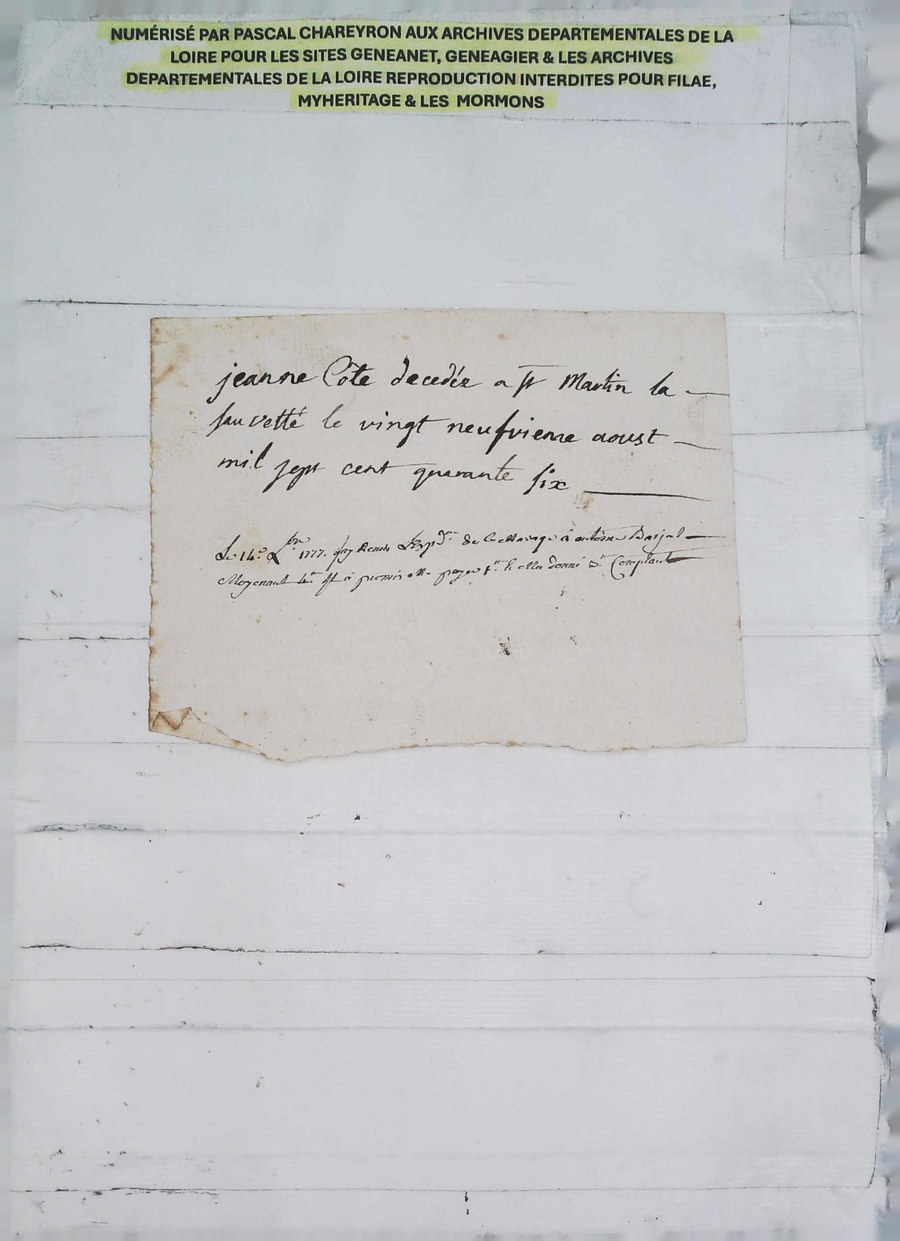 NUMÉRISÉ PAR PASCAL CHAREYRON AUX ARCHIVES DEPARTEMENTALES DE LA
LOIRE POUR LES SITES GENEANET, GENEAGIER & LES ARCHIVES
DEPARTEMENTALES DE LA LOIRE REPRODUCTION INTERDITES POUR FILAE,
MYHERITAGE & LES MORMONS
jeanne Côte decedée a st Martin la
sauvetté le vingt neufvieme aoust
mil sept cent quarante six
Le 14e 1777. de le à
Moyenant à donné